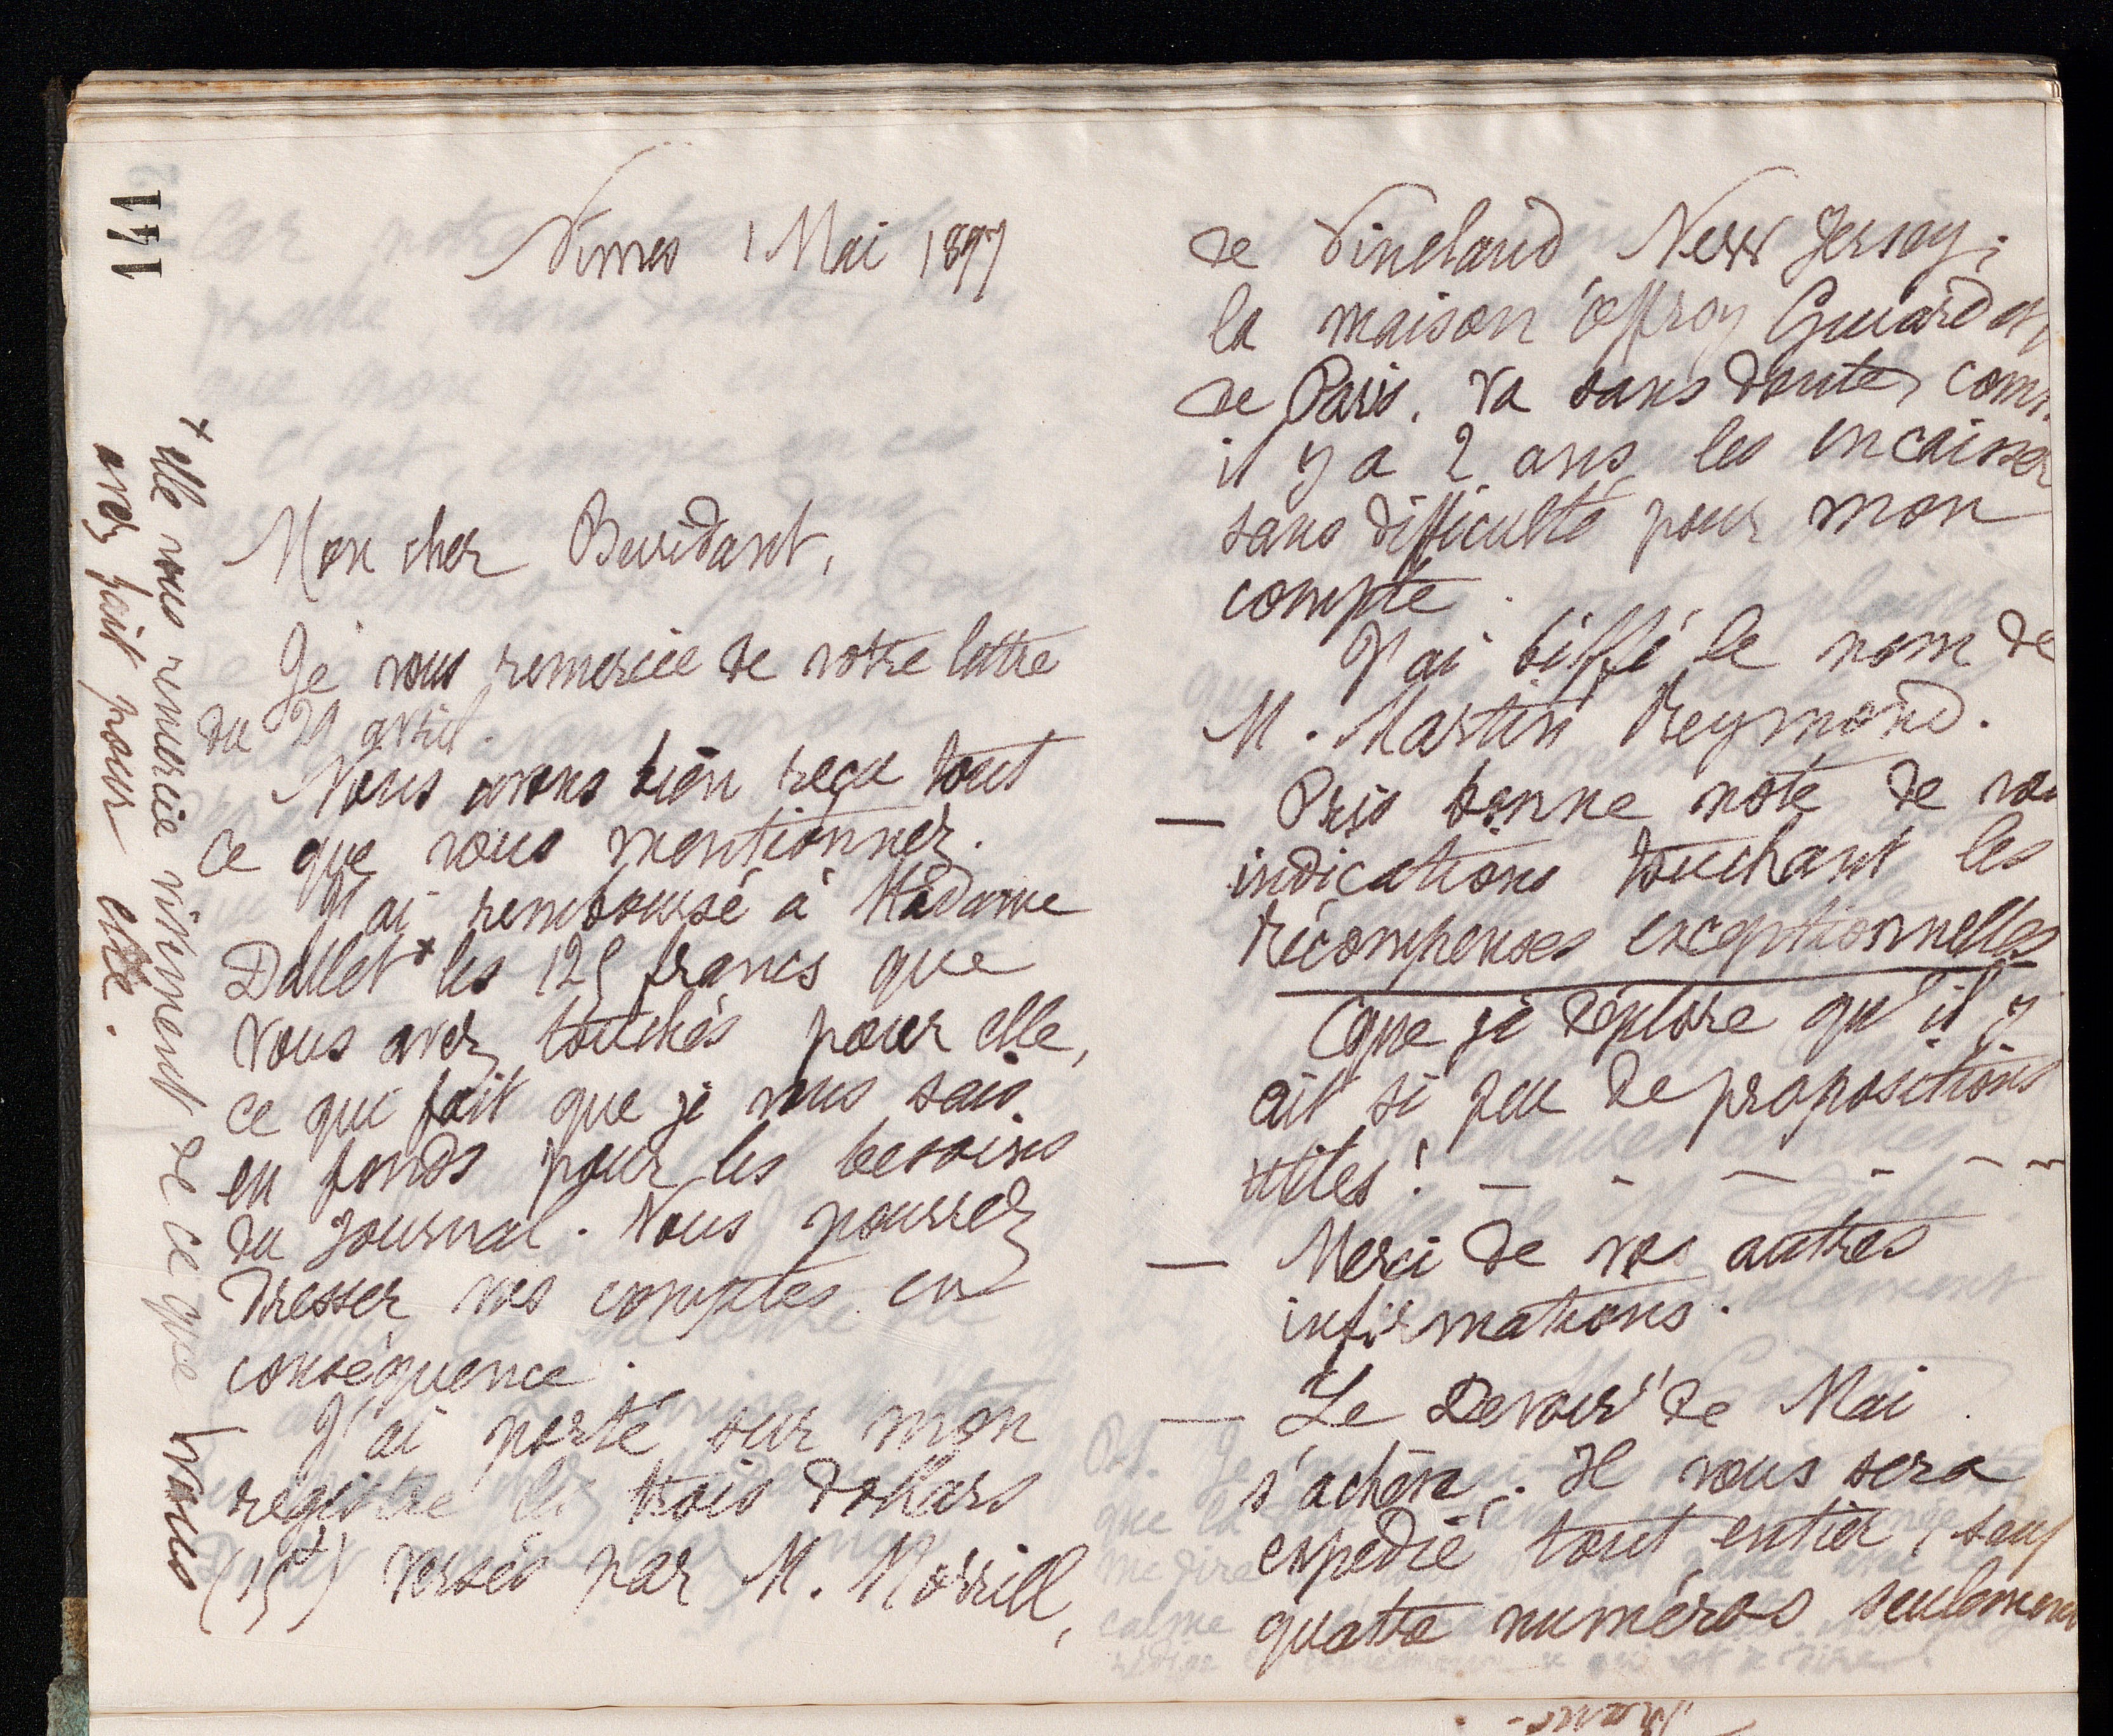 141
Nimes 1 Mai 1897
Mon cher Buridant,
Je vous remercie de votre lettre
du 29 avril.
Nous avons bien reçu tout
ce que vous mentionnez.
J'ai remboursé à Madame
Dallet + les 125 francs que
vous avez touchés pour elle,
ce qui fait que je vous sais
en fonds pour les besoins
du journal. Vous pourrez
dresser vos comptes en
conséquence.
J'ai porté sur mon
registre les trois dollars
(15f) versés par M. Morrill,
+ elle vous remercie vivement de ce que vous
avez fait pour elle.
de Vineland New Jersey;
la maison Offroy Guiard et,
de Paris. va sans doute, comm
il y a 2 ans, les encaisser
sans difficulté pour mon
compte.
J'ai biffé le nom de
M. Martin Reymond.
— Pris bonne note de vos
indications touchant les
récompenses exceptionnelles
Que je déplore qu'il y
ait si peu de propositions
utiles! — - — - — -
— Merci de vos autres
informations.
— Le Devoir de Mai
s'achève. Il vous sera
expédié tout entier, sauf
quatre numéros seulement